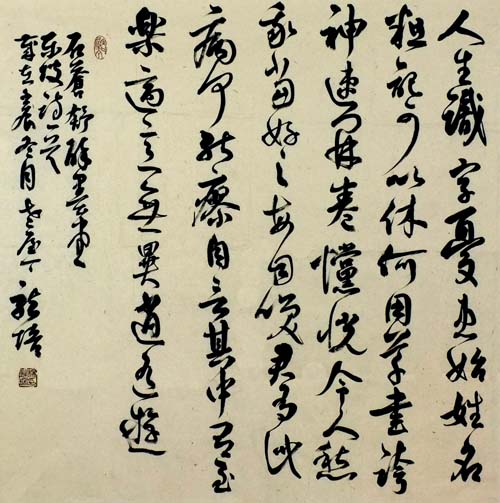 人生識字憂患始姓名
粗記可以休何用草書誇
神速開卷戃恍令人愁
我嘗好之每自笑君有此
病何能療自言其中有至
樂適意無異逍遙遊
石蒼舒醉墨堂
東坡詩一首
冬月